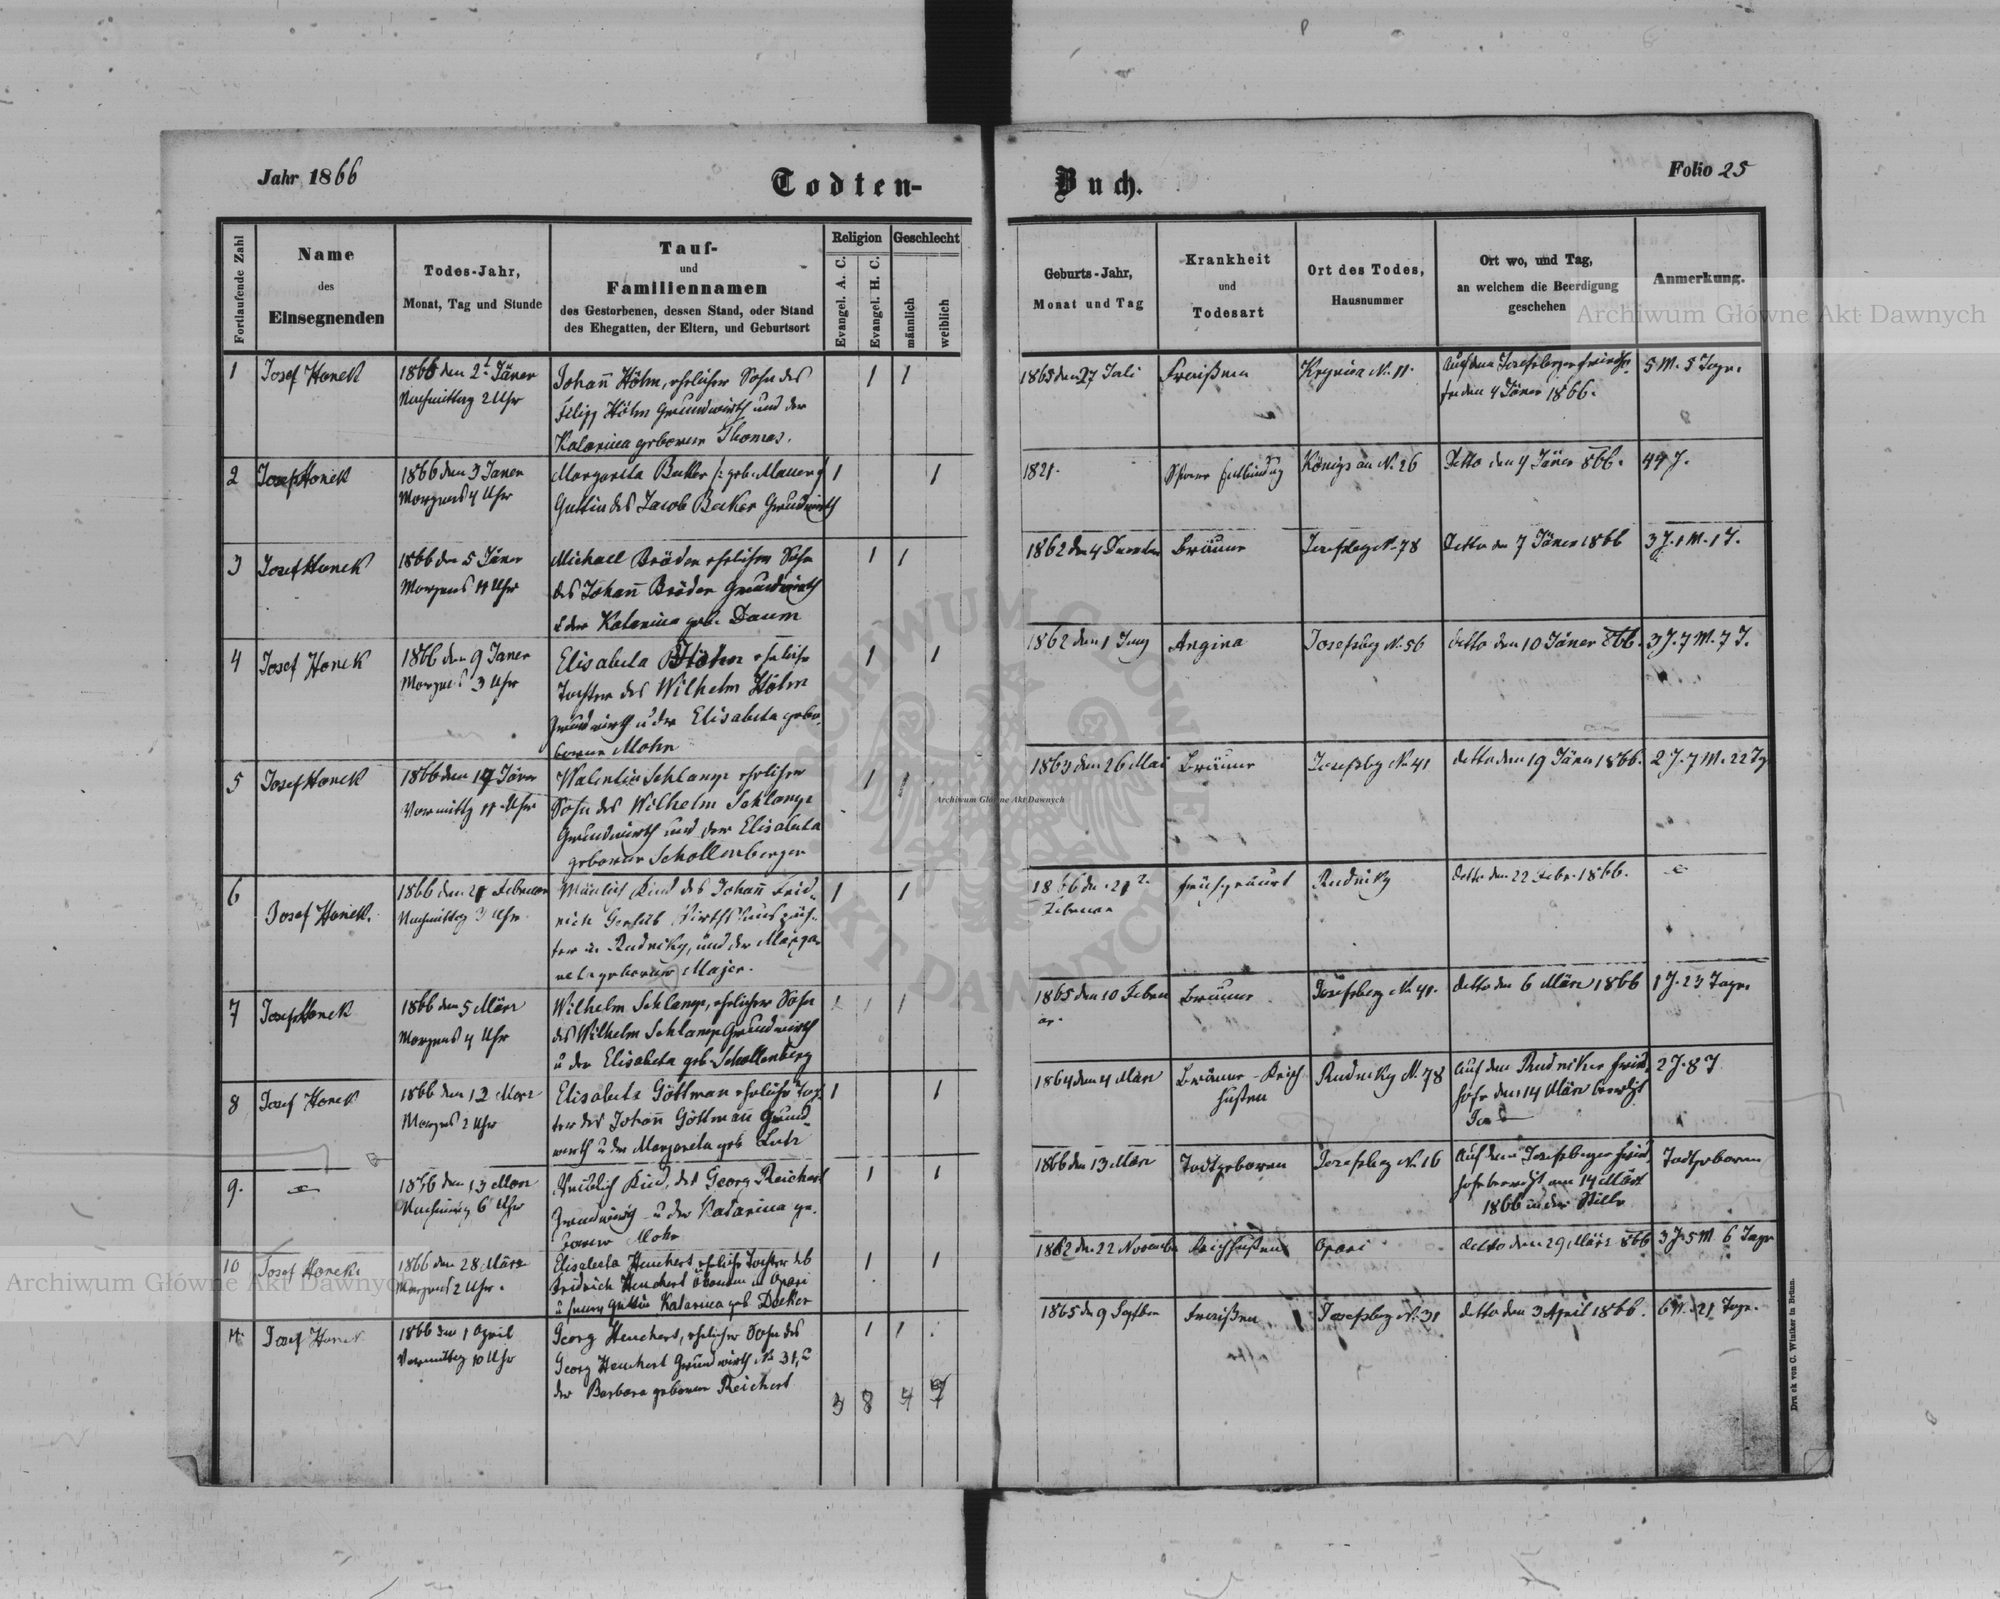 Jahr 1866
Todten-
Buch.
Folio 25
Fortlaufende Zahl
Name
des
Einsegnenden
Todes-Jahr,
Monat, Tag und Stunde
Tauf-
und
Familiennamen
des Gestorbenen, dessen Stand, oder Stand
des Ehegatten, der Eltern, und Geburtsort
Religion
Evangel. A. C.
Evangel. H. C.
Geschlecht
männlich
weiblich
Geburts-Jahr,
Monat und Tag
Krankheit
und
Todesart
Ort des Todes,
Hausnummer
Ort wo, und Tag,
an welchem die Beerdigung
geschehen
Anmerkung.
Archiwum Główne Akt Dawnych
1 Josef Honek
1866 den 2t Jäner
Nachmittag 2 Uhr
Johann Höhn, ehelicher Sohn des
Filipp Höhn Grundwirth und der
Katarina geborene Thomas.
1 1
1865 den 27 Juli
Fraißen
Krynica N. 11
Auf dem Josefsberger Friedho-
fe den 4 Jäner 1866.
5 M. 5 Tage.
2 Josef Honek
1866 den 3 Janer
Morgens 4 Uhr
Margareta Becker /: geb. Mauer
Gattin des Jacob Becker Grundwirth
1 1
1821.
Schwere Entbindung
Königsau N. 26
Detto den 4 Jäner 866.
44 J.
3 Josef Honek
1866 den 5 Jäner
Morgens 11 Uhr
Michael Bräder ehelicher Sohn
des Johann Bräder Grundwirth
u der Katarina geb. Daum
1 1
1862 den 4 December
Bräune
Josefsbeg N. 78
Detto den 7 Jäner 1866
3 J. 1 M. 1 T.
4 Josef Honek
1866 den 9 Janer
Morgens 3 Uhr
Elisabeta Höhn eheliche
Tochter des Wilhelm Höhn
Grundwirth u der Elisabeta gebo-
borene Mohr
1 1
1862 den 1 Juny
Angina
Josefsbg N. 56
detto den 10 Jäner 866.
3 J. 7 M. 7 T.
5 Josef Honek
1866 den 17 Jäner
Vormittg 11 Uhr
Walentin Schlamp ehelicher
Sohn des Wilhelm Schlamp
Grundwirth und der Elisabeta
geborene Schollenberger
1 1
1863 den 26 Mai
Bräune
Josefsbg N. 41
detto den 19 Jäner 1866.
2 J. 7 M. 22 Tg
Archiwum Główne Akt Dawnych
6 Josef Honek.
1866 den 21 Februar
Nachmittag 3 Uhr
Mänlich Kind des Johann Fried-
rich Wirthshauspäch-
ter in Rudniky, und der Marga-
reta geborene Majer.
1 1
1866 den 21
Februar
Rudniky
Detto den 22 Febr. 1866.
7 Josef Honek
1866 den 5 März
Morgens 4 Uhr
Wilhelm Schlamp, ehelicher Sohn
des Wilhelm Schlamp Grundwirth
u der Elisabeta geb. Schollenberg
1 1
1865 den 10 Febru
ar.
Bräune
Josefsberg N. 41.
detto den 6 März 1866
1 J. 23 Tage
8 Josef Honek
1866 den 12 März
Morgens 2 Uhr
Elisabeta Göttman eheliche Toch-
ter des Johann Göttmann Grund-
wirth u der Margareta geb Lutz
1 1
1864 den 4 März
Bräune - Keich
husten
Rudniky N. 78
Auf dem Rudniker Fried
hofe den 14 März
2 J. 8 T
9.
1866 den 13 März
Nachmittg 6 Uhr
Weiblich Kind, des Georg Reichert
Grundwirth u der Katarina ge.
borene Mohr
1 1
1866 den 13 März
Todtgeboren
Josefsbeg N. 16
Auf dem Josefsberger Fried
hofe am 14 März
1866 in der Stille
Todtgeboren
10 Josef Honek.
1866 den 28 März
Morgens 2 Uhr.
Elisabeta Heuchert eheliche Tochter des
Fridrich Heuchert Ökonom in Opari
u seiner Gattin Katarina geb. Decker
1 1
1862 den 22 November
Keichhusten
Opari
detto den 29 März 866
3 J. 5 M. 6 Tage
11. Josef Honek
1866 den 1 April
Vormittag 10 Uhr
Georg Heuchert, ehelicher Sohn des
Georg Heuchert Grundwirth N. 31, u
der Barbara geborene Reichert
1 1
1865 den 9 Septber
Fraißen
Josefsbeg N. 31
detto den 3 April 1866.
6 M. 21 Tage.
3 8
Archiwum Główne Akt Dawnych
ARCHIWUM GŁÓWNE AKT DAWNYCH
Druck von C. Winiker in Brünn.